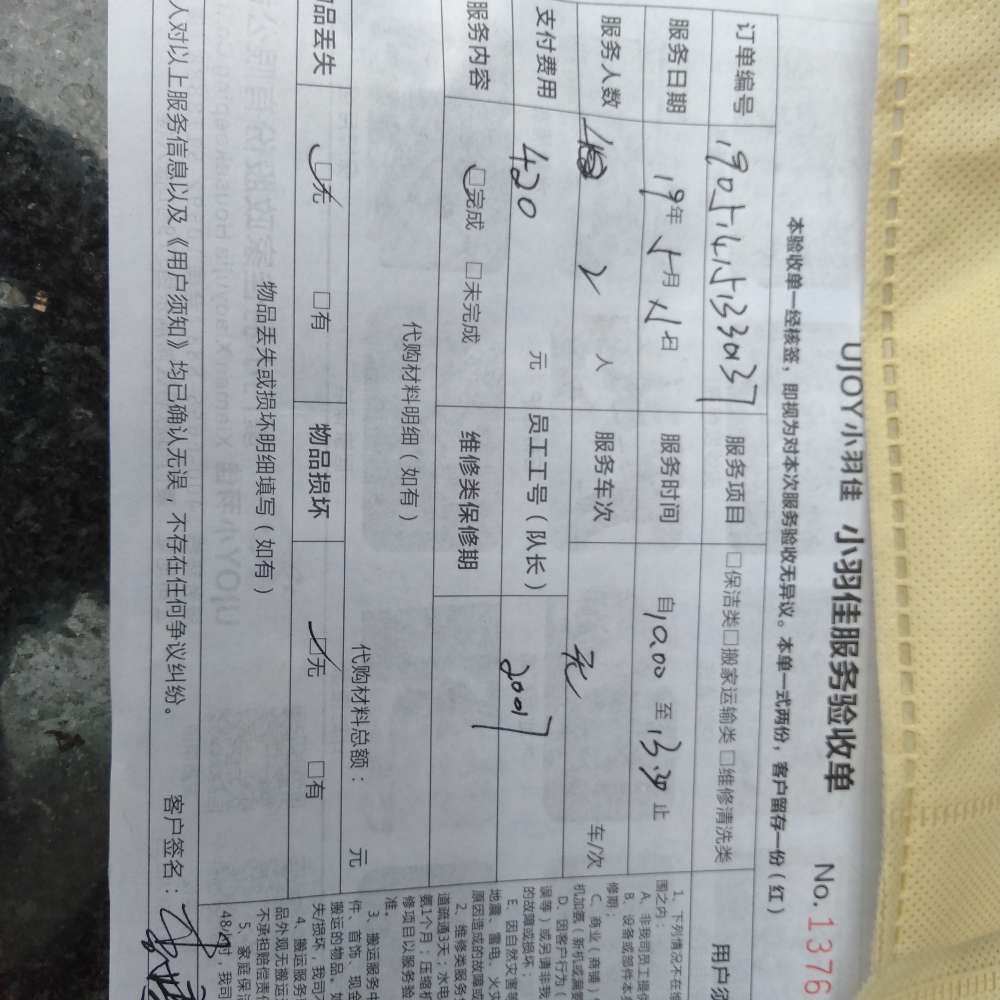 UJOY小羽佳 小羽佳服务验收单 No.1376
本验收单一经核签，即视为对本次服务验收无异议。本单一式两份，客户留存一份（红）
订单编号 19051451330137 服务项目 □保洁类□搬家运输类□维修清洗类
服务日期 19年5月 日 服务时间 自10.00至13.30止
服务人数 2 人 服务车次 无 车/次
支付费用 420 元 员工工号（队长） 2007
服务内容 □完成 □未完成 维修类保修期
代购材料明细（如有） 代购材料总额： 元
物品丢失 □无 □有 物品损坏 □无 □有
物品丢失或损坏明细填写（如有）
人对以上服务信息以及《用户须知》均已确认无误，不存在任何争议纠纷。 客户签名：
用户须
1、下列情况不在维
围之内：
A、非我司员工提供
B、设备或部件本身
修期；
C、商业（商铺）
机加氨（新机或漏氨
D、因客户行为（
误等）或另请非我
的故障或损坏；
E、因自然灾害等
地震、雷电、火灾
原因造成的故障或
2、维修类服务
道疏通3天；水电
氨1个月；压缩机
修项目以服务验
准。
3、搬运服务中
件、首饰、现金
搬运的物品，如
失/损坏，我司不
4、搬运服务
品外观无搬运
不承担赔偿责任
5、家庭保洁
48小时，我司